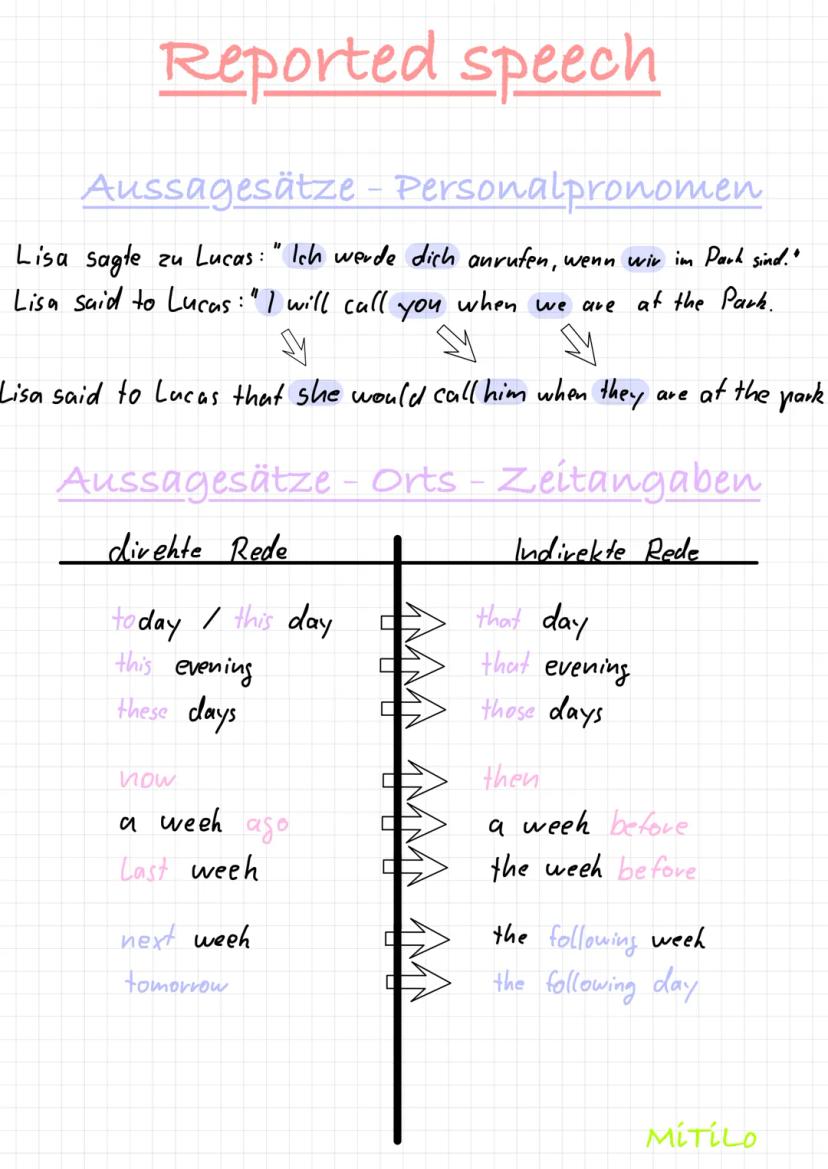 Reported speech
Aussagesätze - Personalpronomen
Lisa sagte zu Lucas: "Ich werde dich anrufen, wenn wir im Park sind."
Lisa said to Lucas: "I will call you when we are at the Park.
Lisa said to Lucas that she would call him when they are at the park
Aussagesätze - Orts - Zeitangaben
direkte Rede Indirekte Rede
today / this day that day
this evening that evening
these days those days
now then
a week ago a week before
Last week the week before
next week the following week
tomorrow the following day
MiTiLo